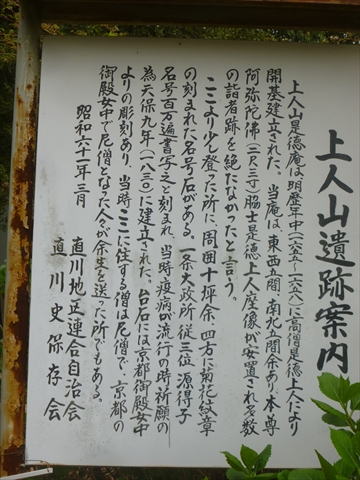 上人山遺跡案内
上人山是徳庵は明歴年中(一六五五~一六五八)に高僧是徳上人により
開基建立された。当庵は東西五間南北五間余あり本尊
阿弥陀佛(二尺三寸)脇士是徳上人座像が安置され多数
の詣者跡を絶たなかったと言う。
ここより少し登った所に、周囲十坪余四方に菊花紋章
の刻まれた名号石がある。一条大政所従三位源得子
名号百万遍書写之と刻まれ、当時疫病が流行の時祈願の
為天保九年(一八三〇)に建立された。台石には京都御殿女中
よりの彫刻あり、当時ここに住する僧は尼僧で、京都の
御殿女中で尼僧となった人が余生を送った所でもある。
昭和六十二年三月
直川地区連合自治会
直川史保存会